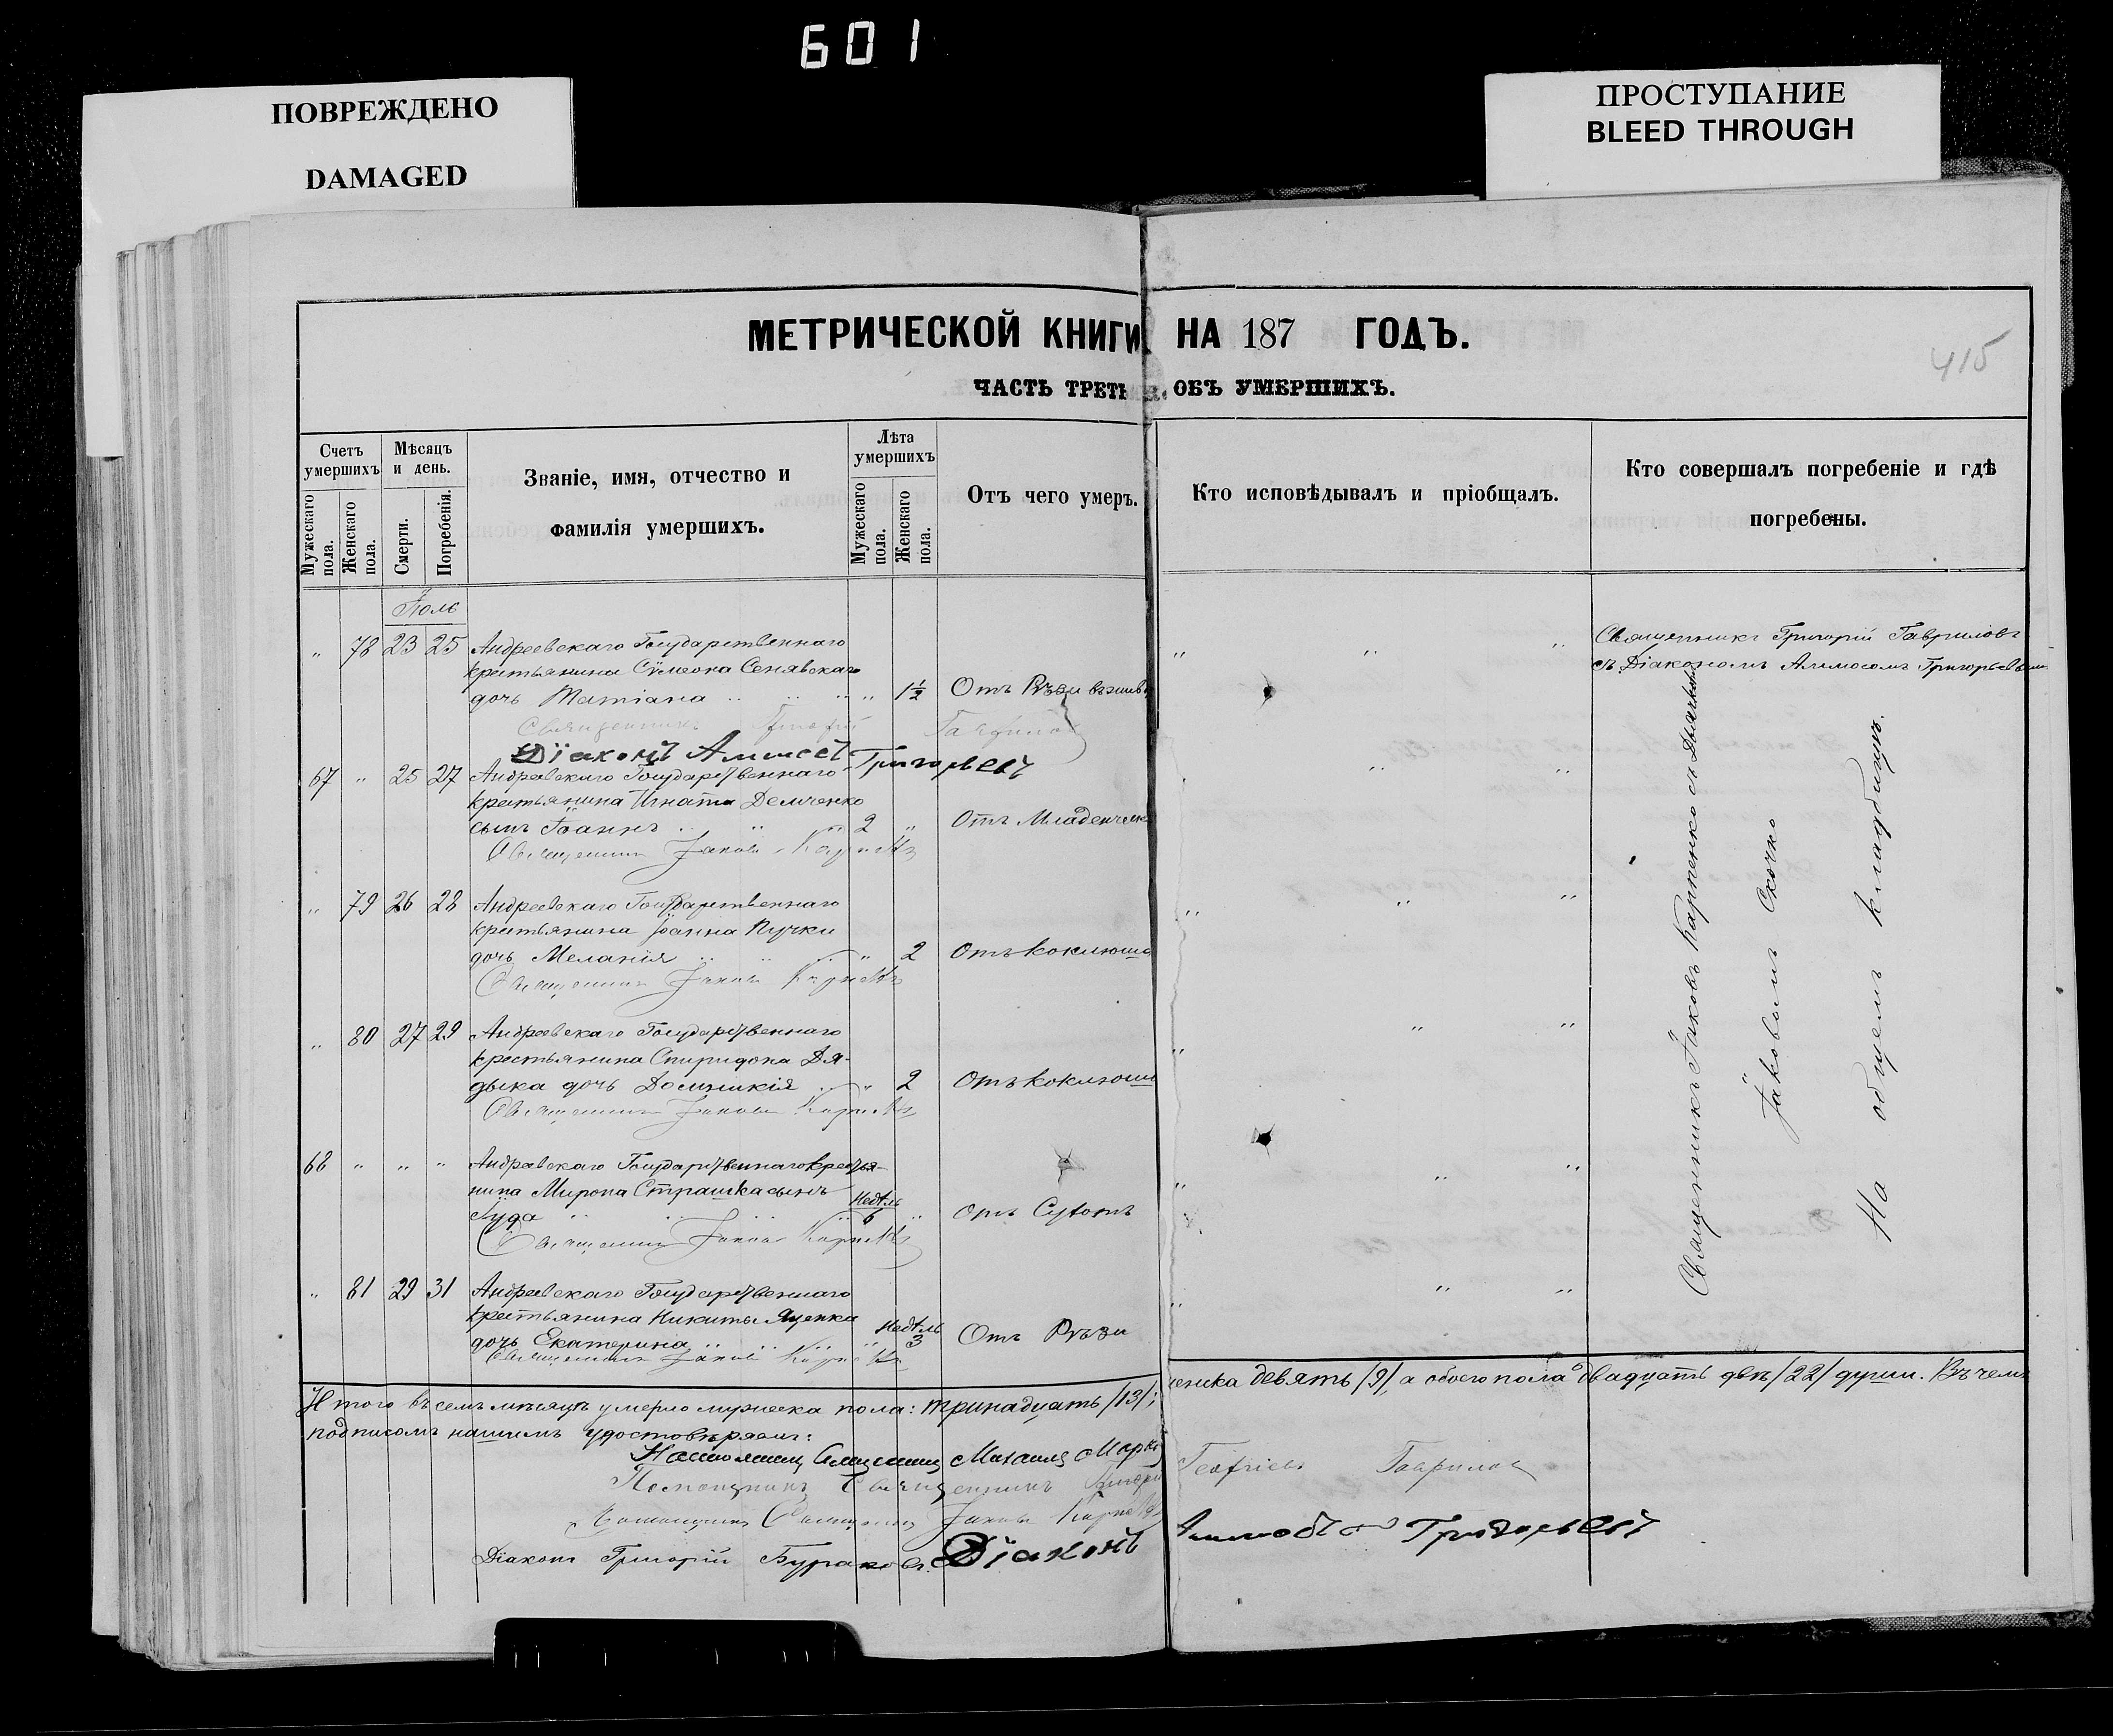 601
ПОВРЕЖДЕНО
DAMAGED
ПРОСТУПАНИЕ
BLEED THROUGH
МЕТРИЧЕСКОЙ КНИГИ НА 187 ГОДЪ.
415
ЧАСТЬ ТРЕТЬ ОБЪ УМЕРШИХЪ.
Счетъ умершихъ
Мужескаго пола.
Женскаго пола.
Мѣсяцъ и день.
Смерти.
Погребенія.
Званіе, имя, отчество и
фамилія умершихъ.
Лѣта умершихъ
Мужескаго пола.
Женскаго пола.
Отъ чего умеръ.
Кто исповѣдывалъ и пріобщалъ.
Кто совершалъ погребеніе и гдѣ
погребены.
Іюль
" 78 23 25 Андреевскаго Государственнаго
крестьянина Сѵмеона Сенявскаго
дочь Татіана " 1½ Отъ Рѣзи
Священникъ Григорій Гавриловъ
съ Діакономъ Григорьевым
Священникъ Григорій Гавриловъ
Діаконъ Григорьевъ
67 " 25 27 Андреевскаго Государственнаго
крестьянина Игната Демченко
сынъ Іоаннъ 2 " Отъ Младенческ
Священникъ Іаковъ Карпенко
" 79 26 28 Андреевскаго Государственнаго
крестьянина Іоанна Пучки
дочь Меланія " 2 Отъ коклюша
Священникъ Іаковъ Карпенко
" 80 27 29 Андреевскаго Государственнаго
крестьянина Спиридона Дя-
дыка дочь Домникія " 2 Отъ коклюша
Священникъ Іаковъ Карпенко
68 " " " Андреевскаго Государственнаго крестья-
нина Мирона Страшка сынъ
Іуда Недѣль 6 " Отъ Сухотъ
Священникъ Іаковъ Карпенко
" 81 29 31 Андреевскаго Государственнаго
крестьянина Никиты Яценка
дочь Екатерина " Недѣль 3 Отъ Рѣзи
Священникъ Іаковъ Карпенко
Священникъ Іаковъ Карпенко съ Дьячкомъ
Іаковомъ Скочко
На общемъ кладбищѣ.
Итого въ семъ мѣсяцѣ умерло мужеска пола: тринадцать /13/; женска девять /9/, а обоего пола двадцать двѣ /22/ души. Въ чемъ
подписомъ нашимъ удостовѣряемъ:
Священникъ Михаилъ
Помощникъ Священникъ Григорій Гавриловъ
Помощникъ Священникъ Іаковъ Карпенко
Діаконъ Григорій Бураковъ. Діаконъ Григорьевъ